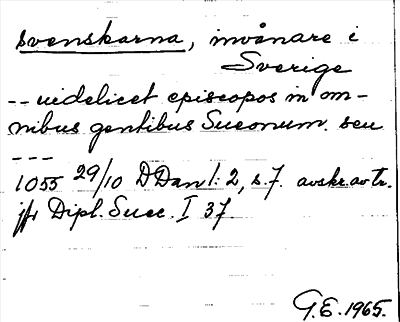 svenskarna, invånare i
Sverige
-- uidelicet episcopos in om-
nibus gentibus Sueonum. seu
---
1055 29/10 DDan 1:2, s.7. avskr. av tr.
jfr Dipl. Suec. I 37
G.E. 1965.